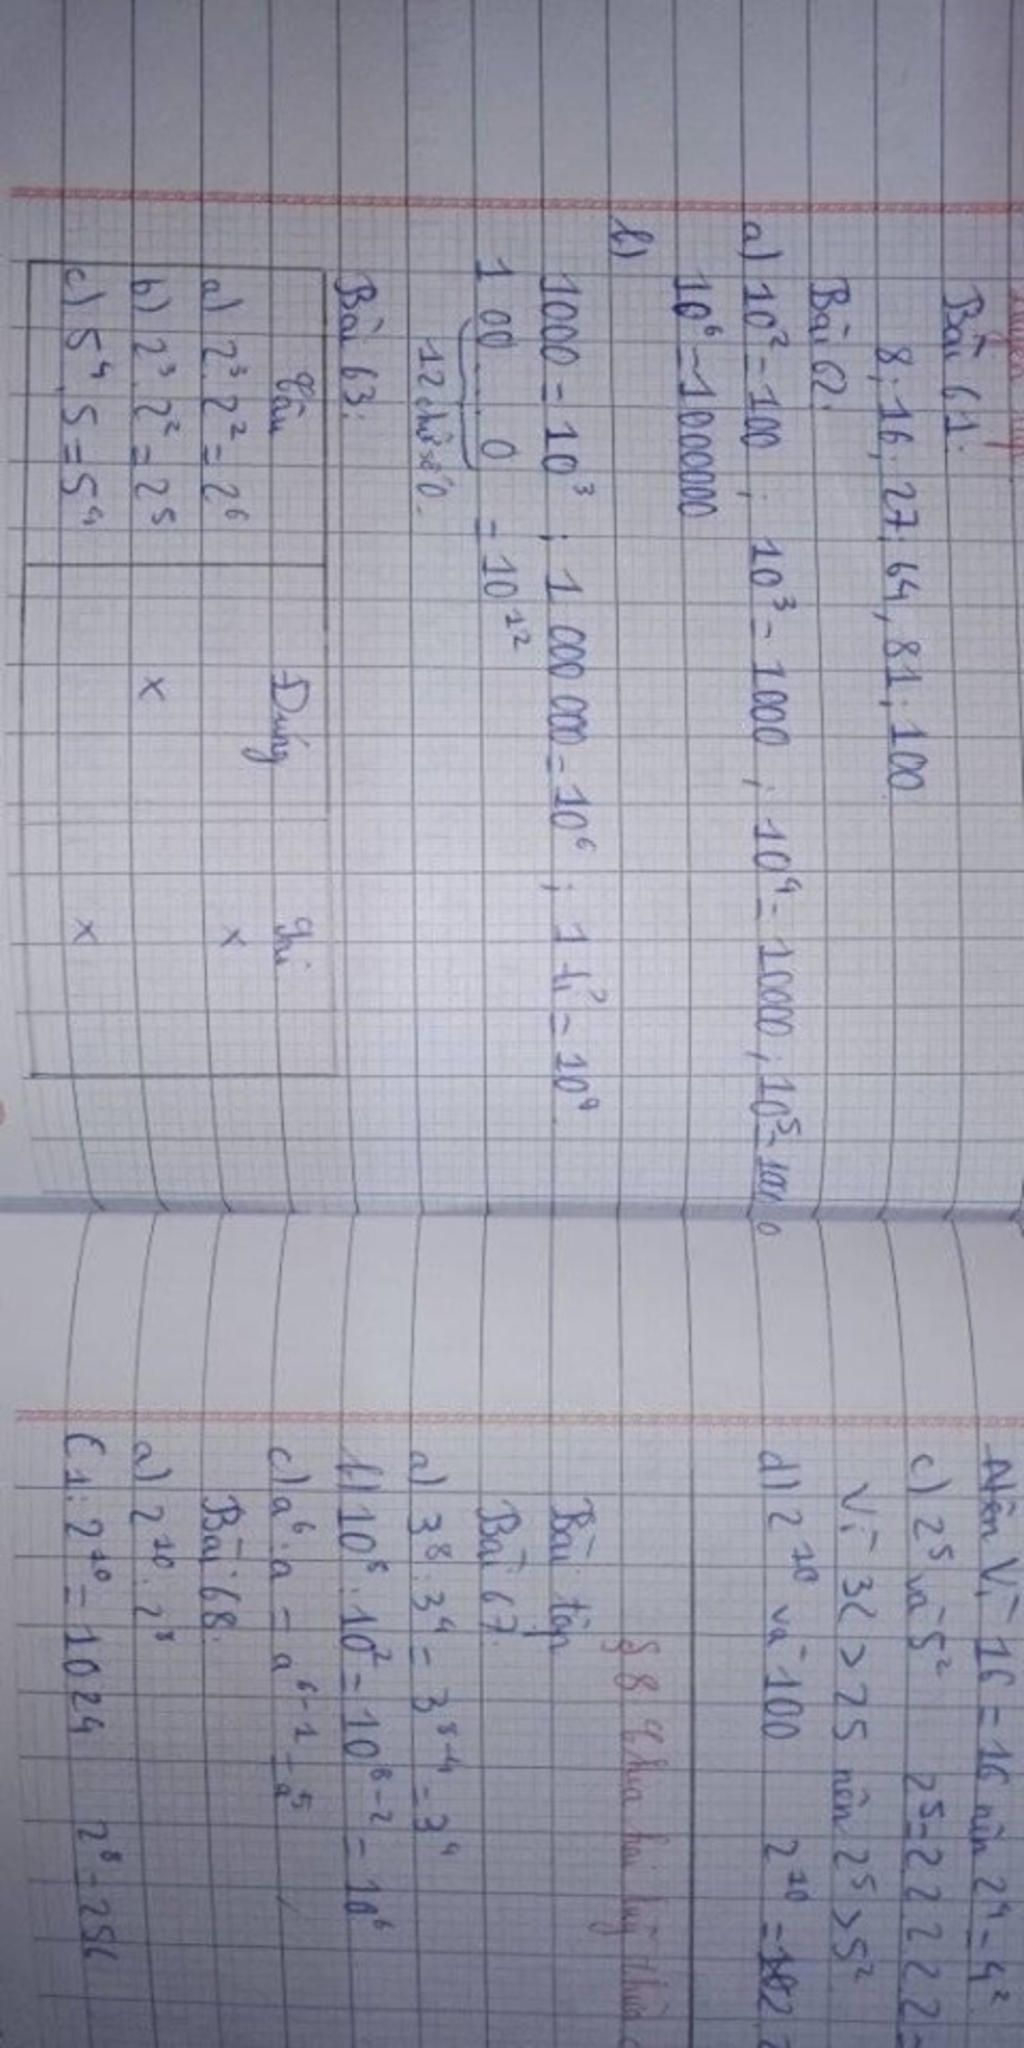 Bài 61:
8, 16, 27, 64, 81, 100
Bài 62:
a) 10² = 100 ; 10³ = 1000 ; 10⁴ = 10000 ; 10⁵ =
10⁶ = 1000000
b)
1000 = 10³ ; 1 000 000 = 10⁶ ; 1 tỉ = 10⁹
1 00...0 = 10¹²
12 chữ số 0.
Bài 63:
Câu Đúng Sai
a) 2³. 2² = 2⁶ x
b) 2³. 2² = 2⁵ x
c) 5⁴. 5 = 5⁴ x
Nên Vì 16 = 16 nên 2⁴ = 4²
c) 2⁵ và 5² 2⁵ = 2.2.2.2.2 =
Vì 32 > 25 nên 2⁵ > 5²
d) 2¹⁰ và 100 2¹⁰ =
§ 8 Chia hai luỹ thừa
Bài tập
Bài 67:
a) 3⁸ : 3⁴ = 3⁸⁻⁴ = 3⁴
b) 10⁸ : 10² = 10⁸⁻² = 10⁶
c) a⁶ : a = a⁶⁻¹ = a⁵
Bài 68:
a) 2¹⁰ : 2⁸
C1: 2¹⁰ = 1024 2⁸ = 256